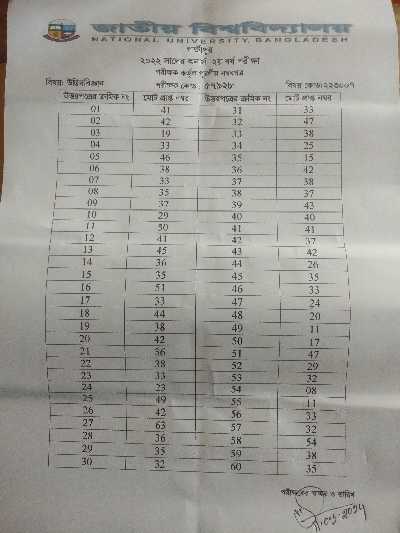 জাতীয় বিশ্ববিদ্যালয়
NATIONAL UNIVERSITY, BANGLADESH
গাজীপুর
২০২২ সালের অনার্স ২য় বর্ষ পরীক্ষা
পরীক্ষক কর্তৃক পূরণীয় নম্বরপত্র
বিষয়: উদ্ভিদবিজ্ঞান পরীক্ষক কোড: ৫৭৯২৮ বিষয় কোড:২২৩০০৭
উত্তরপত্রের ক্রমিক নং মোট প্রাপ্ত নম্বর উত্তরপত্রের ক্রমিক নং মোট প্রাপ্ত নম্বর
01 41 31 33
02 42 32 47
03 19 33 38
04 33 34 25
05 46 35 15
06 38 36 42
07 33 37 38
08 35 38 37
09 37 39 43
10 29 40 40
11 50 41 41
12 41 42 37
13 45 43 42
14 36 44 26
15 35 45 35
16 51 46 33
17 33 47 24
18 44 48 20
19 38 49 11
20 42 50 17
21 56 51 47
22 38 52 29
23 33 53 32
24 23 54 08
25 49 55 11
26 42 56 33
27 63 57 32
28 36 58 54
29 35 59 38
30 32 60 35
পরীক্ষকের স্বাক্ষর ও তারিখ